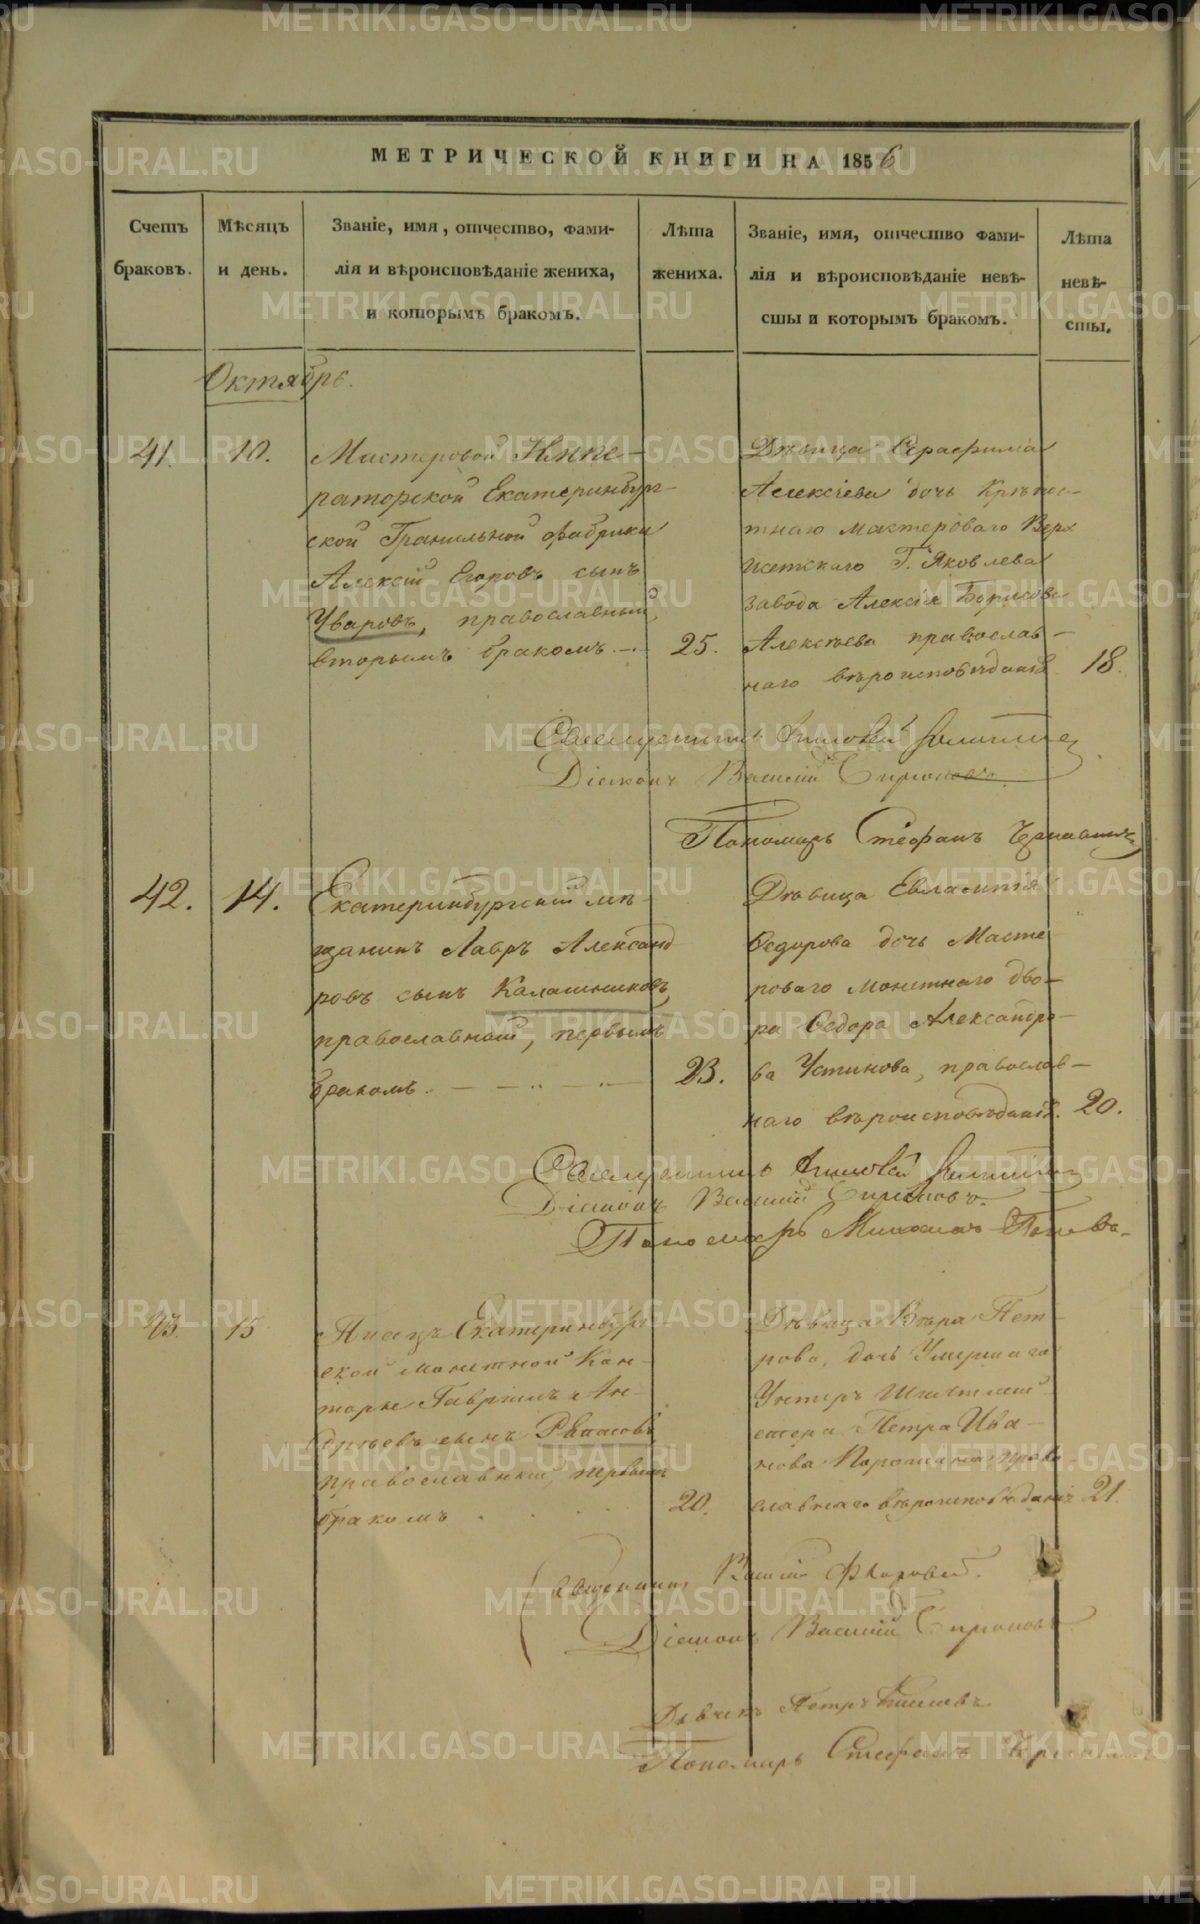 МЕТРИЧЕСКОЙ КНИГИ НА 1856
Счетъ браковъ.
Мѣсяцъ и день.
Званіе, имя, отчество, фами-
лія и вѣроисповѣданіе жениха,
и которымъ бракомъ.
Лѣта жениха.
Званіе, имя, отчество фами-
лія и вѣроисповѣданіе невѣ-
сты и которымъ бракомъ.
Лѣта невѣ-
сты.
Октябрь.
41. 10.
Мастеровой Импе-
раторской Екатеринбург-
ской Гранильной фабрики
Алексій Егоровъ сынъ
Уваровъ, православный,
вторымъ бракомъ. 25.
Дѣвица Серафима
Алексіева дочь Крѣпос-
тнаго мастероваго Верх
исетскаго Г. Яковлева
завода Алексія Борисова
Алексѣева православ-
наго вѣроисповѣданія. 18.
Священникъ
Діаконъ Василій
Пономарь Стефанъ
42. 14.
Екатеринбургскій мѣ-
щанинъ Лавръ Александ
ровъ сынъ Калашниковъ,
православный, первымъ
бракомъ. 23.
Дѣвица Евлампія
Ѳедорова дочь Масте-
роваго монетнаго дво-
ра Ѳедора Александро-
ва Устинова, православ-
наго вѣроисповѣданія. 20.
Священникъ
Діаконъ Василій
Пономарь
43. 15
Писецъ Екатеринбург-
ской монетной Кон-
торы Гавріилъ
сынъ
православный, первымъ
бракомъ 20.
Дѣвица Вѣра Пет-
рова, дочь Умершаго
Унтеръ
Петра Ива-
нова право
славнаго вѣроисповѣданія 21.
Священникъ Василій
Діаконъ Василій
Дьячекъ Петръ
Пономарь Стефанъ
METRIKI.GASO-URAL.RU